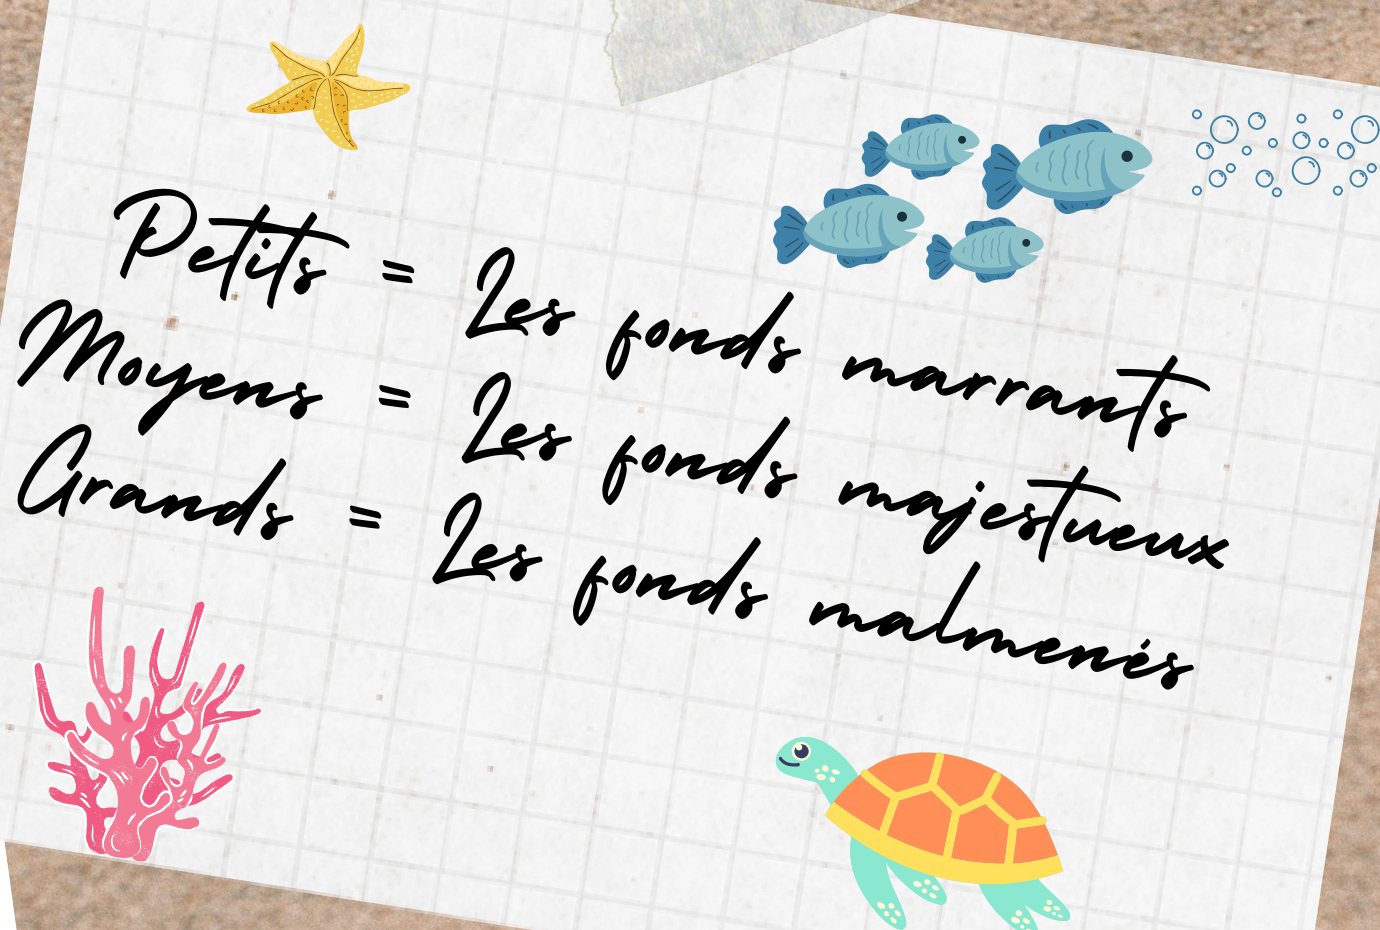 Petits = Les fonds marrants
Moyens = Les fonds majestueux
Grands = Les fonds malmenés